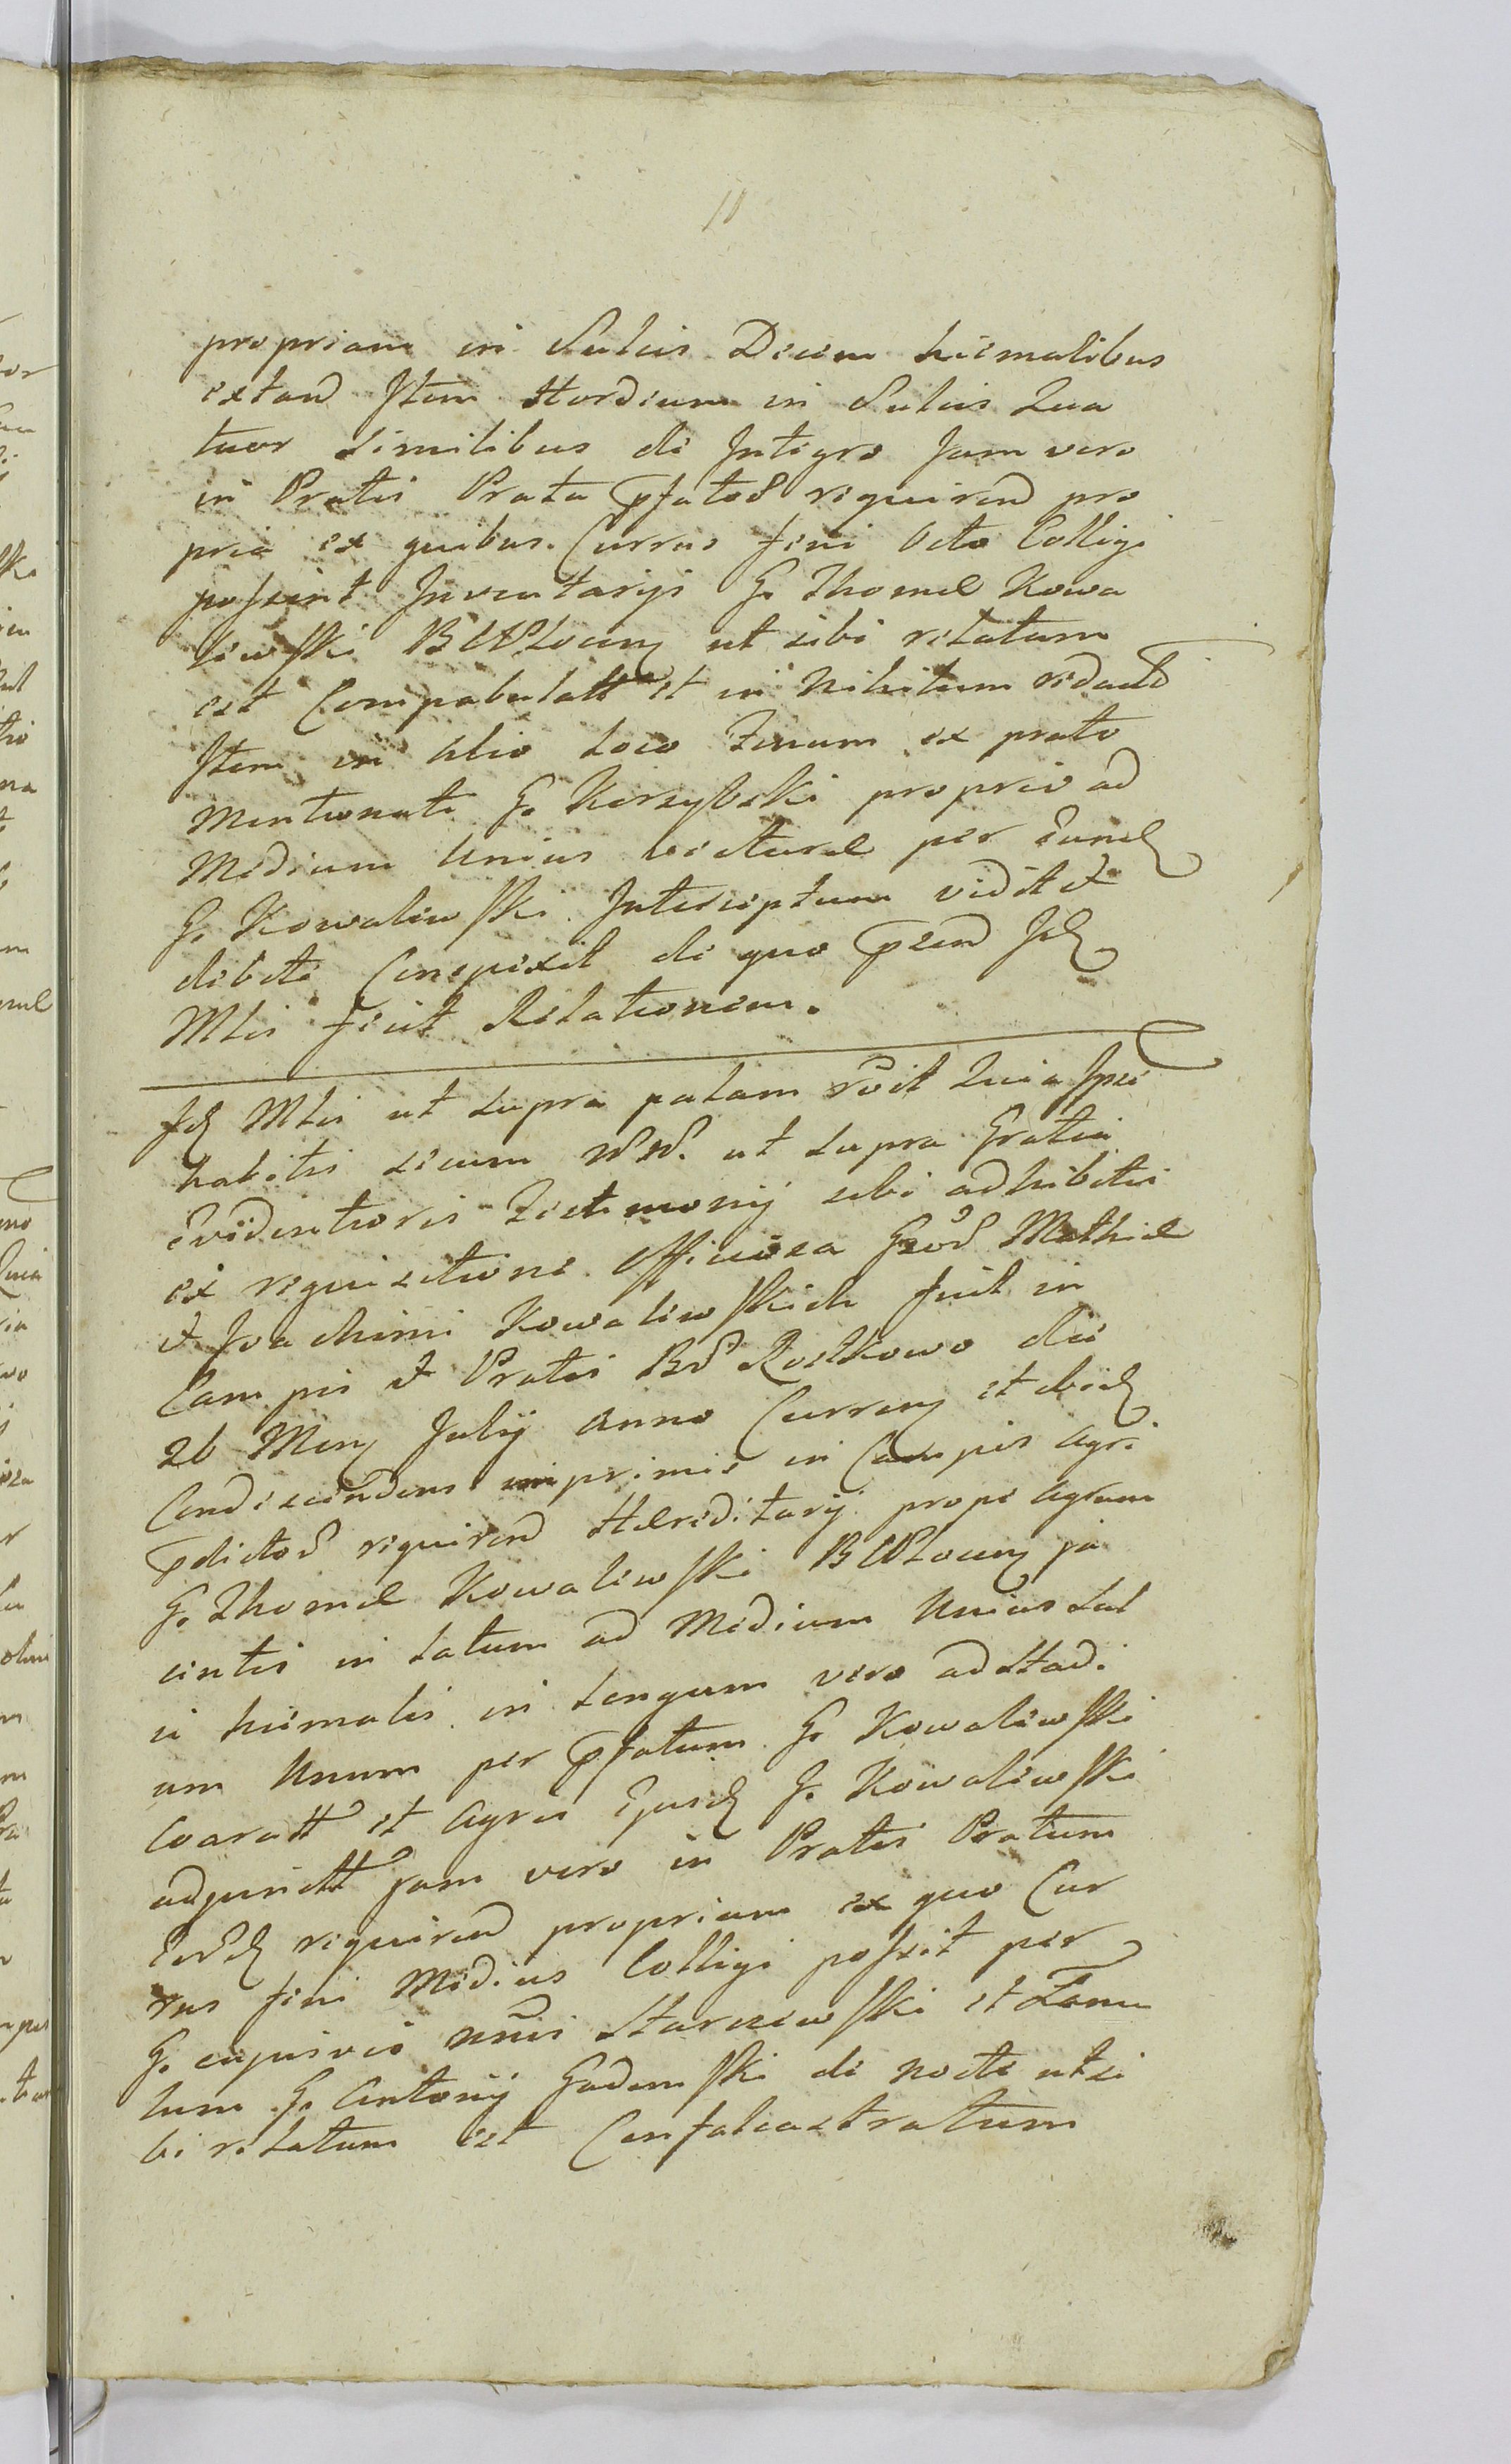 11
propriam in Sulcis Decem hiemalibus
extand Item Hordeum in Sulcis Qua
tuor similibus de Integro Jam vero
in Pratis Prata pfatoƺ requirend pro
pria ex quibus Currus feni Octo Colligi
possint Inventarijs G. Thomæ Kowa
lewski ut sibi relatum
est Compabulatt et in Nihilum redact
Item in Alio Loco Fenum ex prato
Mentionati G. proprio ad
Medium Unius vecturæ per Eund
G. Kowalewski Interceptum vidit et
debite Conspexit de quo pzend Id
Mlis fecit Relationem.
Id Mlis ut supra palam Quia Ipse
habitis secum ut supra Gratia
Evidentioris Testimonij sibi adhibitis
ex requisitione Officiosa Gnoƺ Mathiæ
et Joachimi Kowalewskich fuit in
Campis et Pratis Rostkowo die
26 Mens Julij Anno Curren et ibid
Condescendens inprimis in Campis agri
pdictoƺ requirend Hæreditarij prope Agrum
G. Thomæ Kowalewski ja
centis in Latum ad Medium Unius Sul
ci hiemalis in Longum vero ad Stadi
um Unum per pfatum G. Kowalewski
Coaratt et Agris Ejusd G. Kowalewski
adjunctt Jam vero in Pratis Pratum
Eorƺd requirend proprium ex quo Cur
rus feni Medius Colligi possit per
G. cujusvis nnis et Famu
lum G. Antonij Gademski de nocte ut si
bi relatum est Confalcastratum